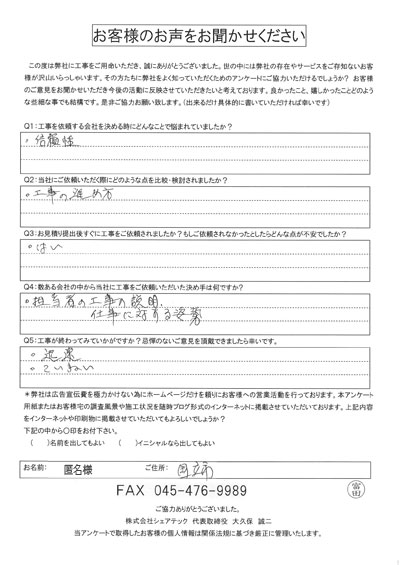 お客様のお声をお聞かせください
この度は弊社に工事をご用命いただき、誠にありがとうございました。世の中には弊社の存在やサービスをご存知ないお客
様が沢山いらっしゃいます。その方たちに弊社をよく知っていただくためのアンケートにご協力いただけるでしょうか? お客様
のご意見をお聞かせいただき今後の活動に反映させていただきたいと考えております。良かったこと、嬉しかったことどのよう
な些細な事でも結構です。是非ご協力お願い致します。(出来るだけ具体的に書いていただければ幸いです)
Q1:工事を依頼する会社を決める時にどんなことで悩まれていましたか?
・信頼性
Q2:当社にご依頼いただく際にどのような点を比較・検討されましたか?
・工事の進め方
Q3:お見積り提出後すぐに工事をご依頼されましたか?もしご依頼されなかったとしたらどんな点が不安でしたか?
・はい
Q4:数ある会社の中から当社に工事をご依頼いただいた決め手は何ですか?
・担当者の工事の説明、
仕事に対する姿勢
Q5:工事が終わってみていかがですか?忌憚のないご意見を頂戴できましたら幸いです。
・迅速
・ていねい
*弊社は広告宣伝費を極力かけない為にホームページだけを頼りにお客様への営業活動を行っております。本アンケート
用紙またはお客様宅の調査風景や施工状況を随時ブログ形式のインターネットに掲載させていただいております。上記内容
をインターネットや印刷物に掲載させていただいてもよろしいでしょうか?
下記の中から〇印をお付下さい。
( )名前を出してもよい ( )イニシャルなら出してもよい
お名前: 匿名様 ご住所: 国立市
FAX 045-476-9989
富田
ご協力ありがとうございました。
株式会社シェアテック 代表取締役 大久保 誠二
当アンケートで取得したお客様の個人情報は関係法規に基づき厳正に管理いたします。